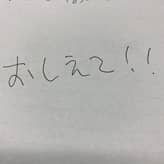 おしえて!!